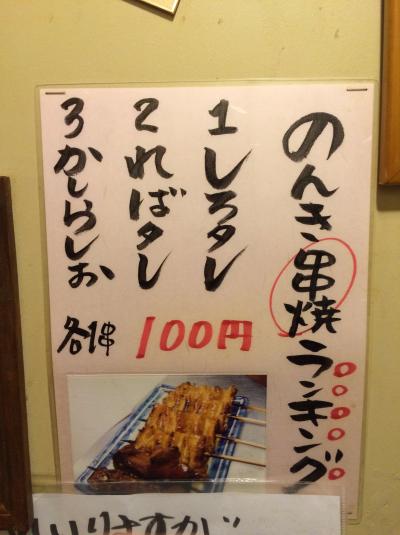 のんき串焼ランキング
1しろタレ
2ればタレ
3かしらしお
各1串
100円